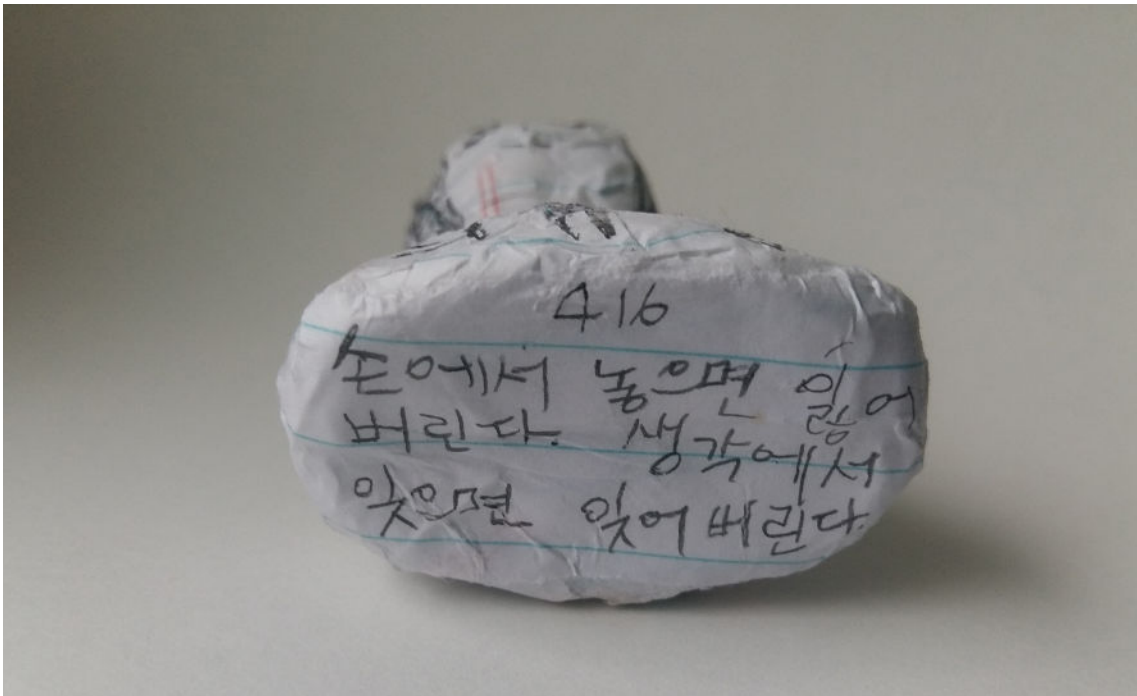 416
손에서 놓으면 잃어
버린다. 생각에서
잊으면 잊어버린다.